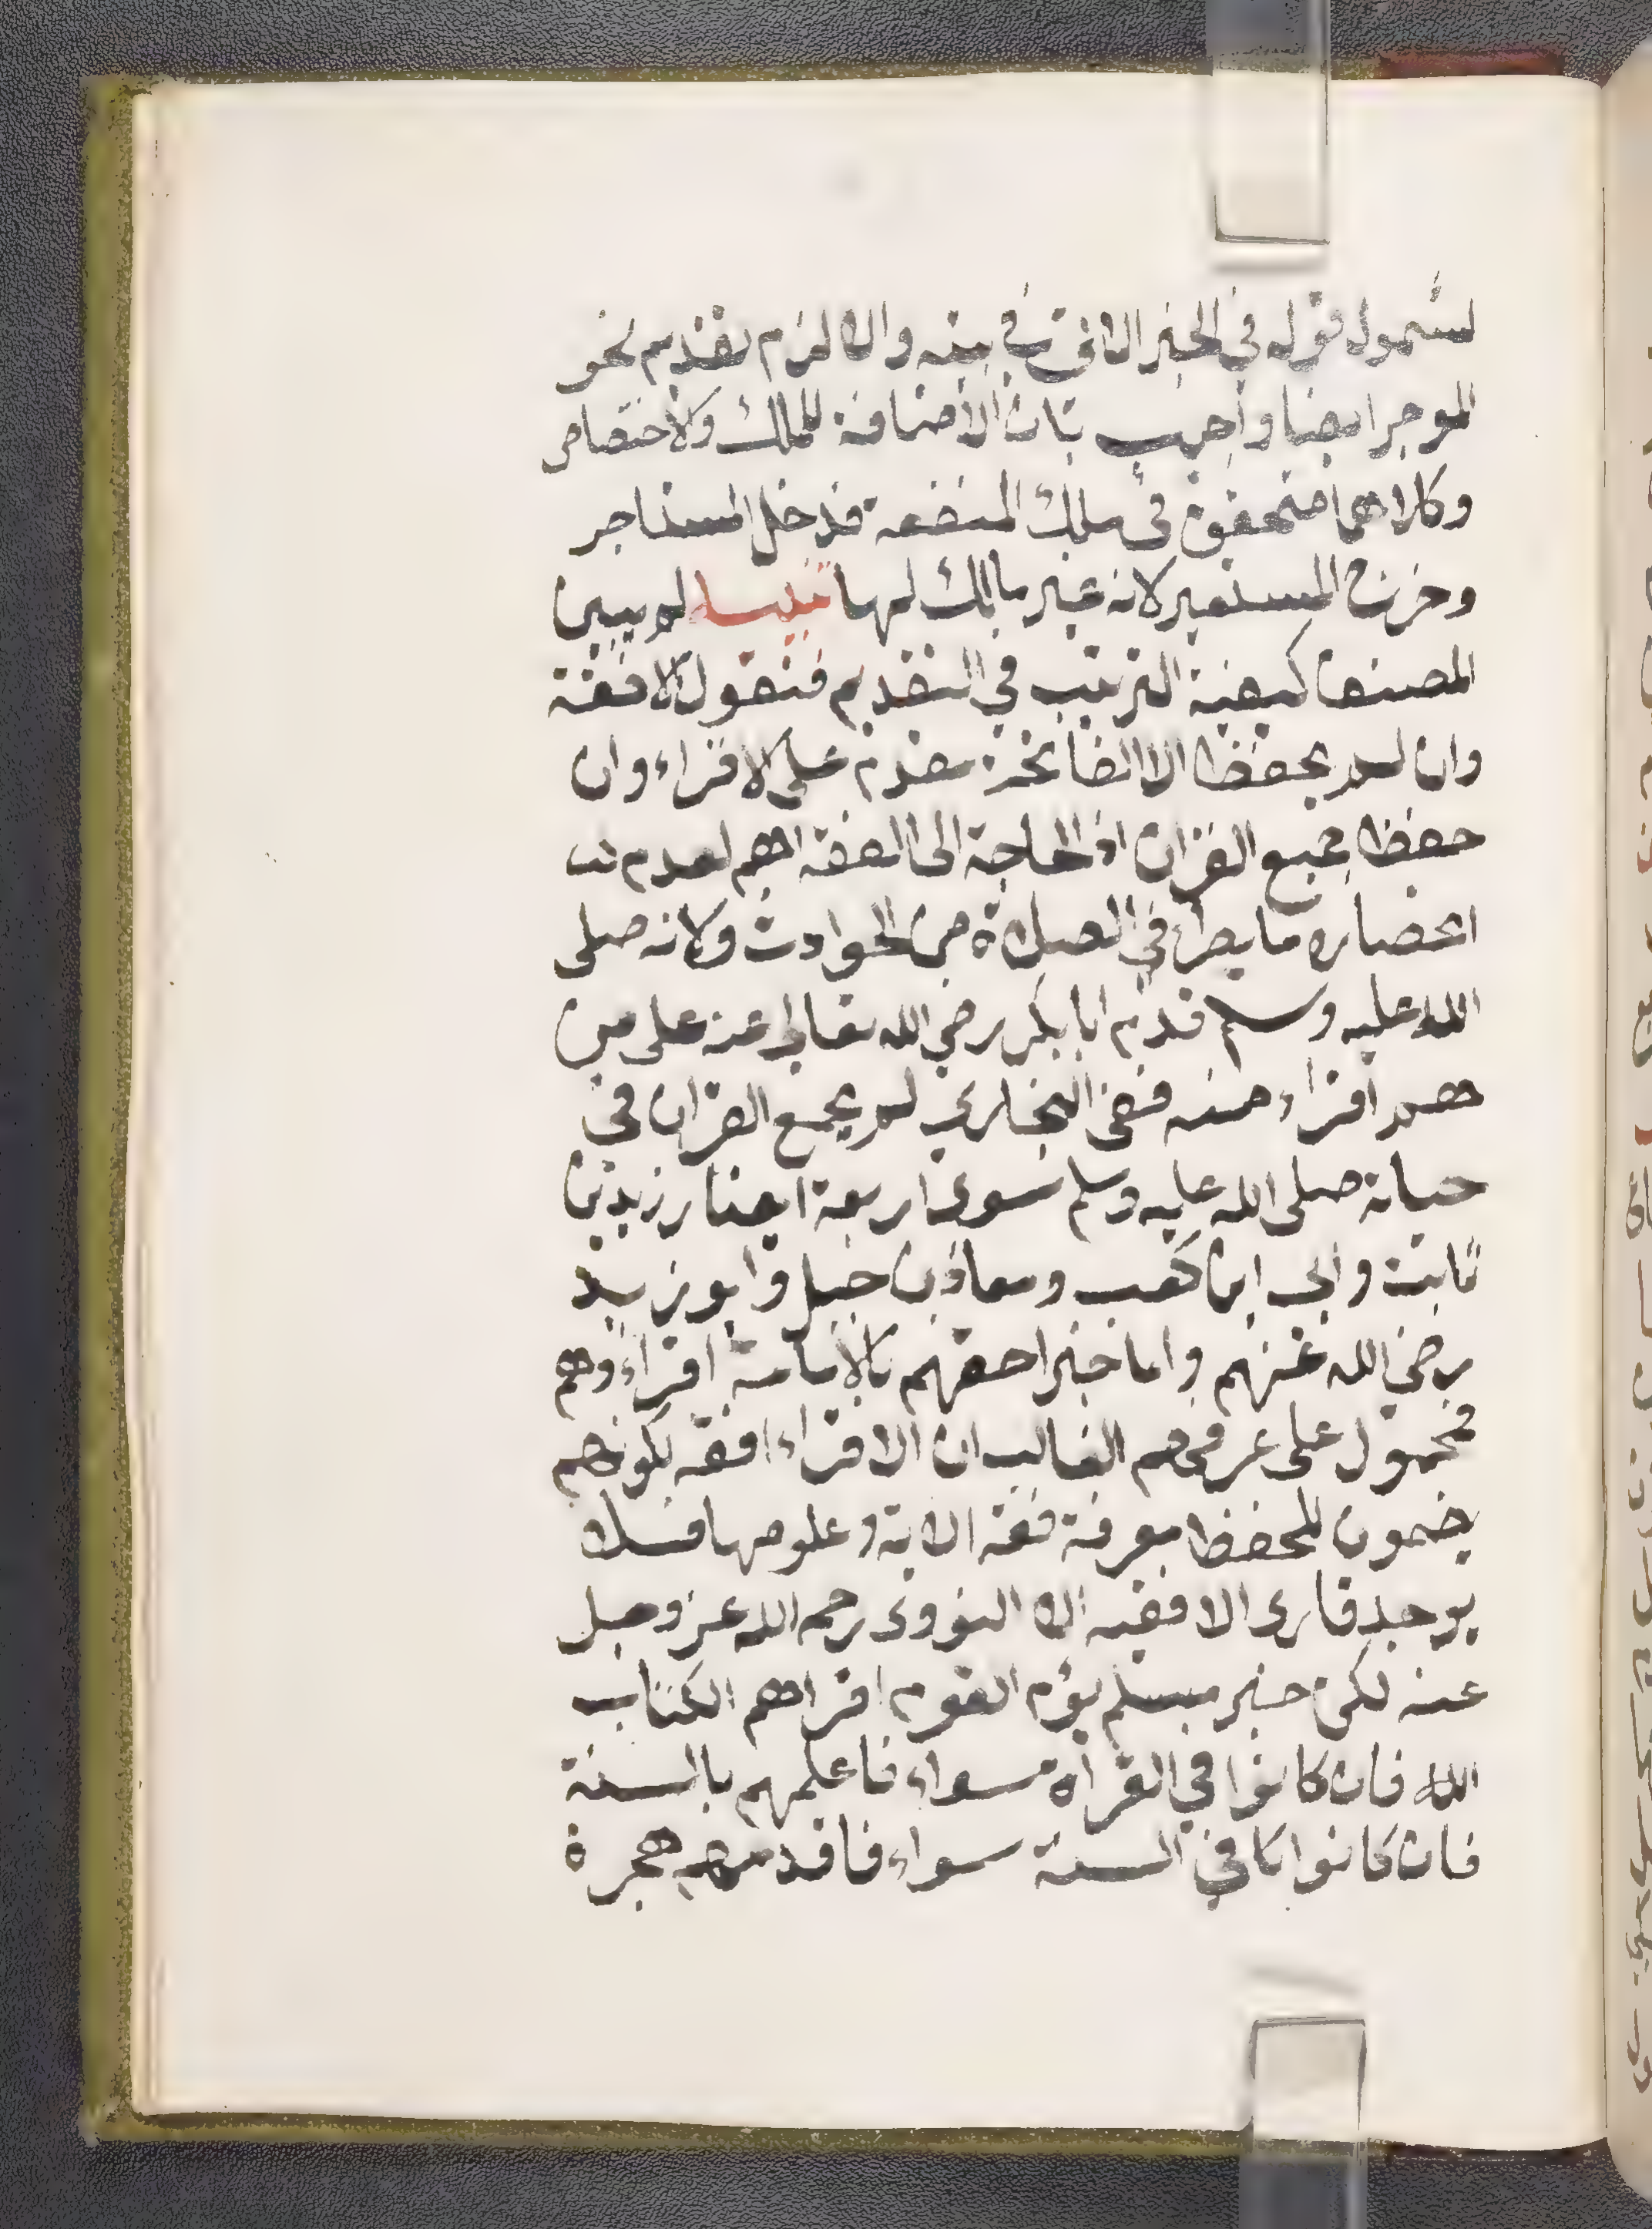 لشمول قوله في الخبر الثاني في بيته والا لزم تقديم نحو
الموجر ايضا واجيب بان الاضافة للملك والاختصاص
وكلاهما متحقق في ملك المنفعة فدخل المستاجر
وخرج المستعير لانه غير مالك لها تنبيه لم يبين
المصنف كيفية الترتيب في التقديم فنقول الافقه
وان لم يحفظ الا الفاتحة مقدم على الاقراء وان
حفظ جميع القران اذ الحاجة الى الفقه اهم لعدم
انحصاره ما يطراء في الصلاة من الحوادث ولانه صلى
الله عليه وسلم قدم ابا بكر رضي الله تعالى عنه على من
هم اقراء منه ففي البخاري لم يجمع القران في
حياته صلى الله عليه وسلم سوى اربعة زيد بن
ثابت وابي ابن كعب ومعاذ بن جبل وابو زيد
رضي الله عنهم واما خبر احقهم بالامامة اقراءهم
فمحمول على عرفهم الغالب ان الاقراء افقه لكونهم
يضمون للحفظ معرفة فقه الاية وعلومها فلا
يوجد قارى الا فقيه النووى رحمه الله عز وجل
عنه لكن خبر مسلم يؤم القوم اقراهم الكتاب
الله فان كانوا في القراه سواء فاعلمهم بالسنة
فان كانوا في السنة سواء فاقدمهم هجرة